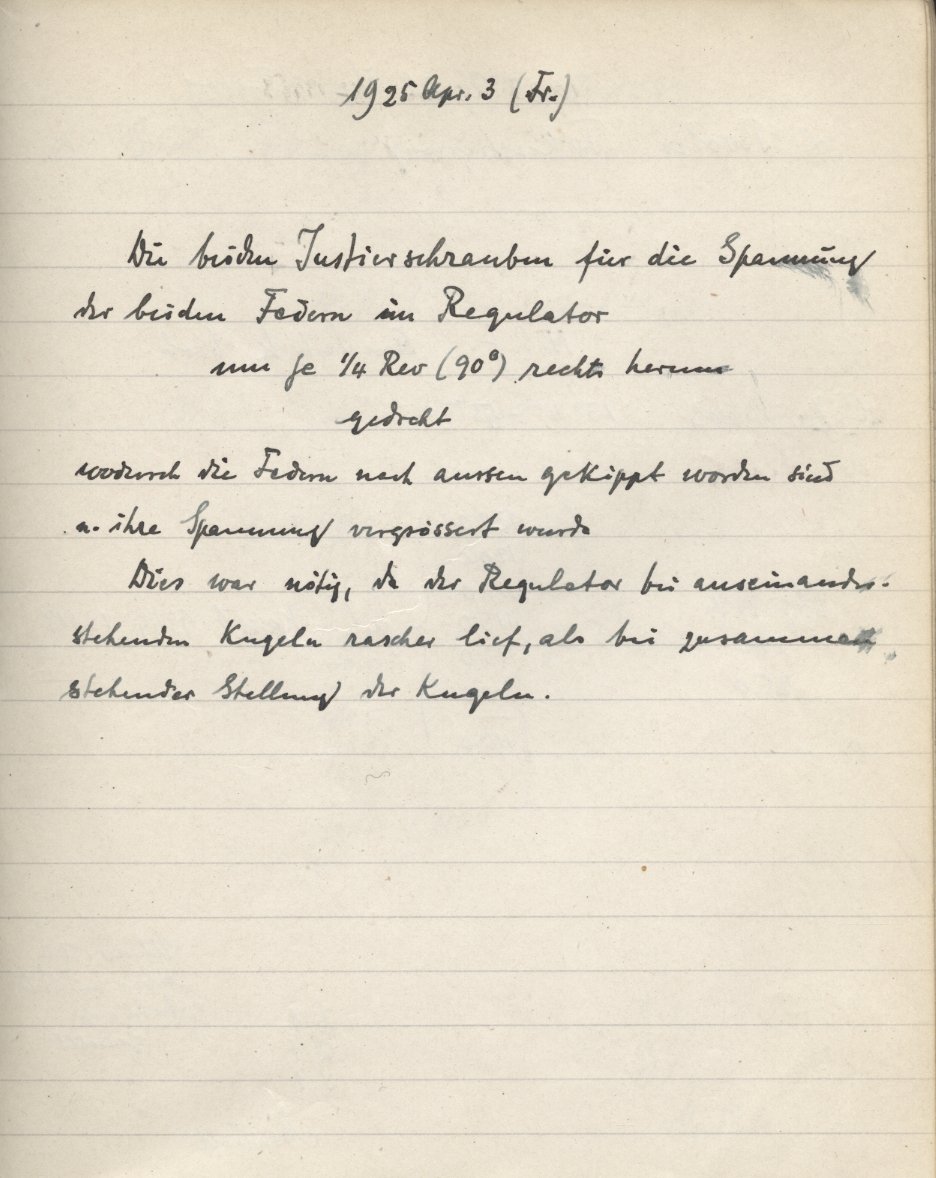 1925 Apr. 3 (Fr.)
Die beiden Justierschrauben für die Spannung
der beiden Federn im Regulator
um je 1/4 Rev (90°) rechts herum
gedreht
wodurch die Federn nach aussen gekippt worden sind
u. ihre Spannung vergrössert wurde
Dies war nötig, da der Regulator bei auseinander-
stehenden Kugeln rascher lief, als bei zusammen
stehender Stellung der Kugeln.